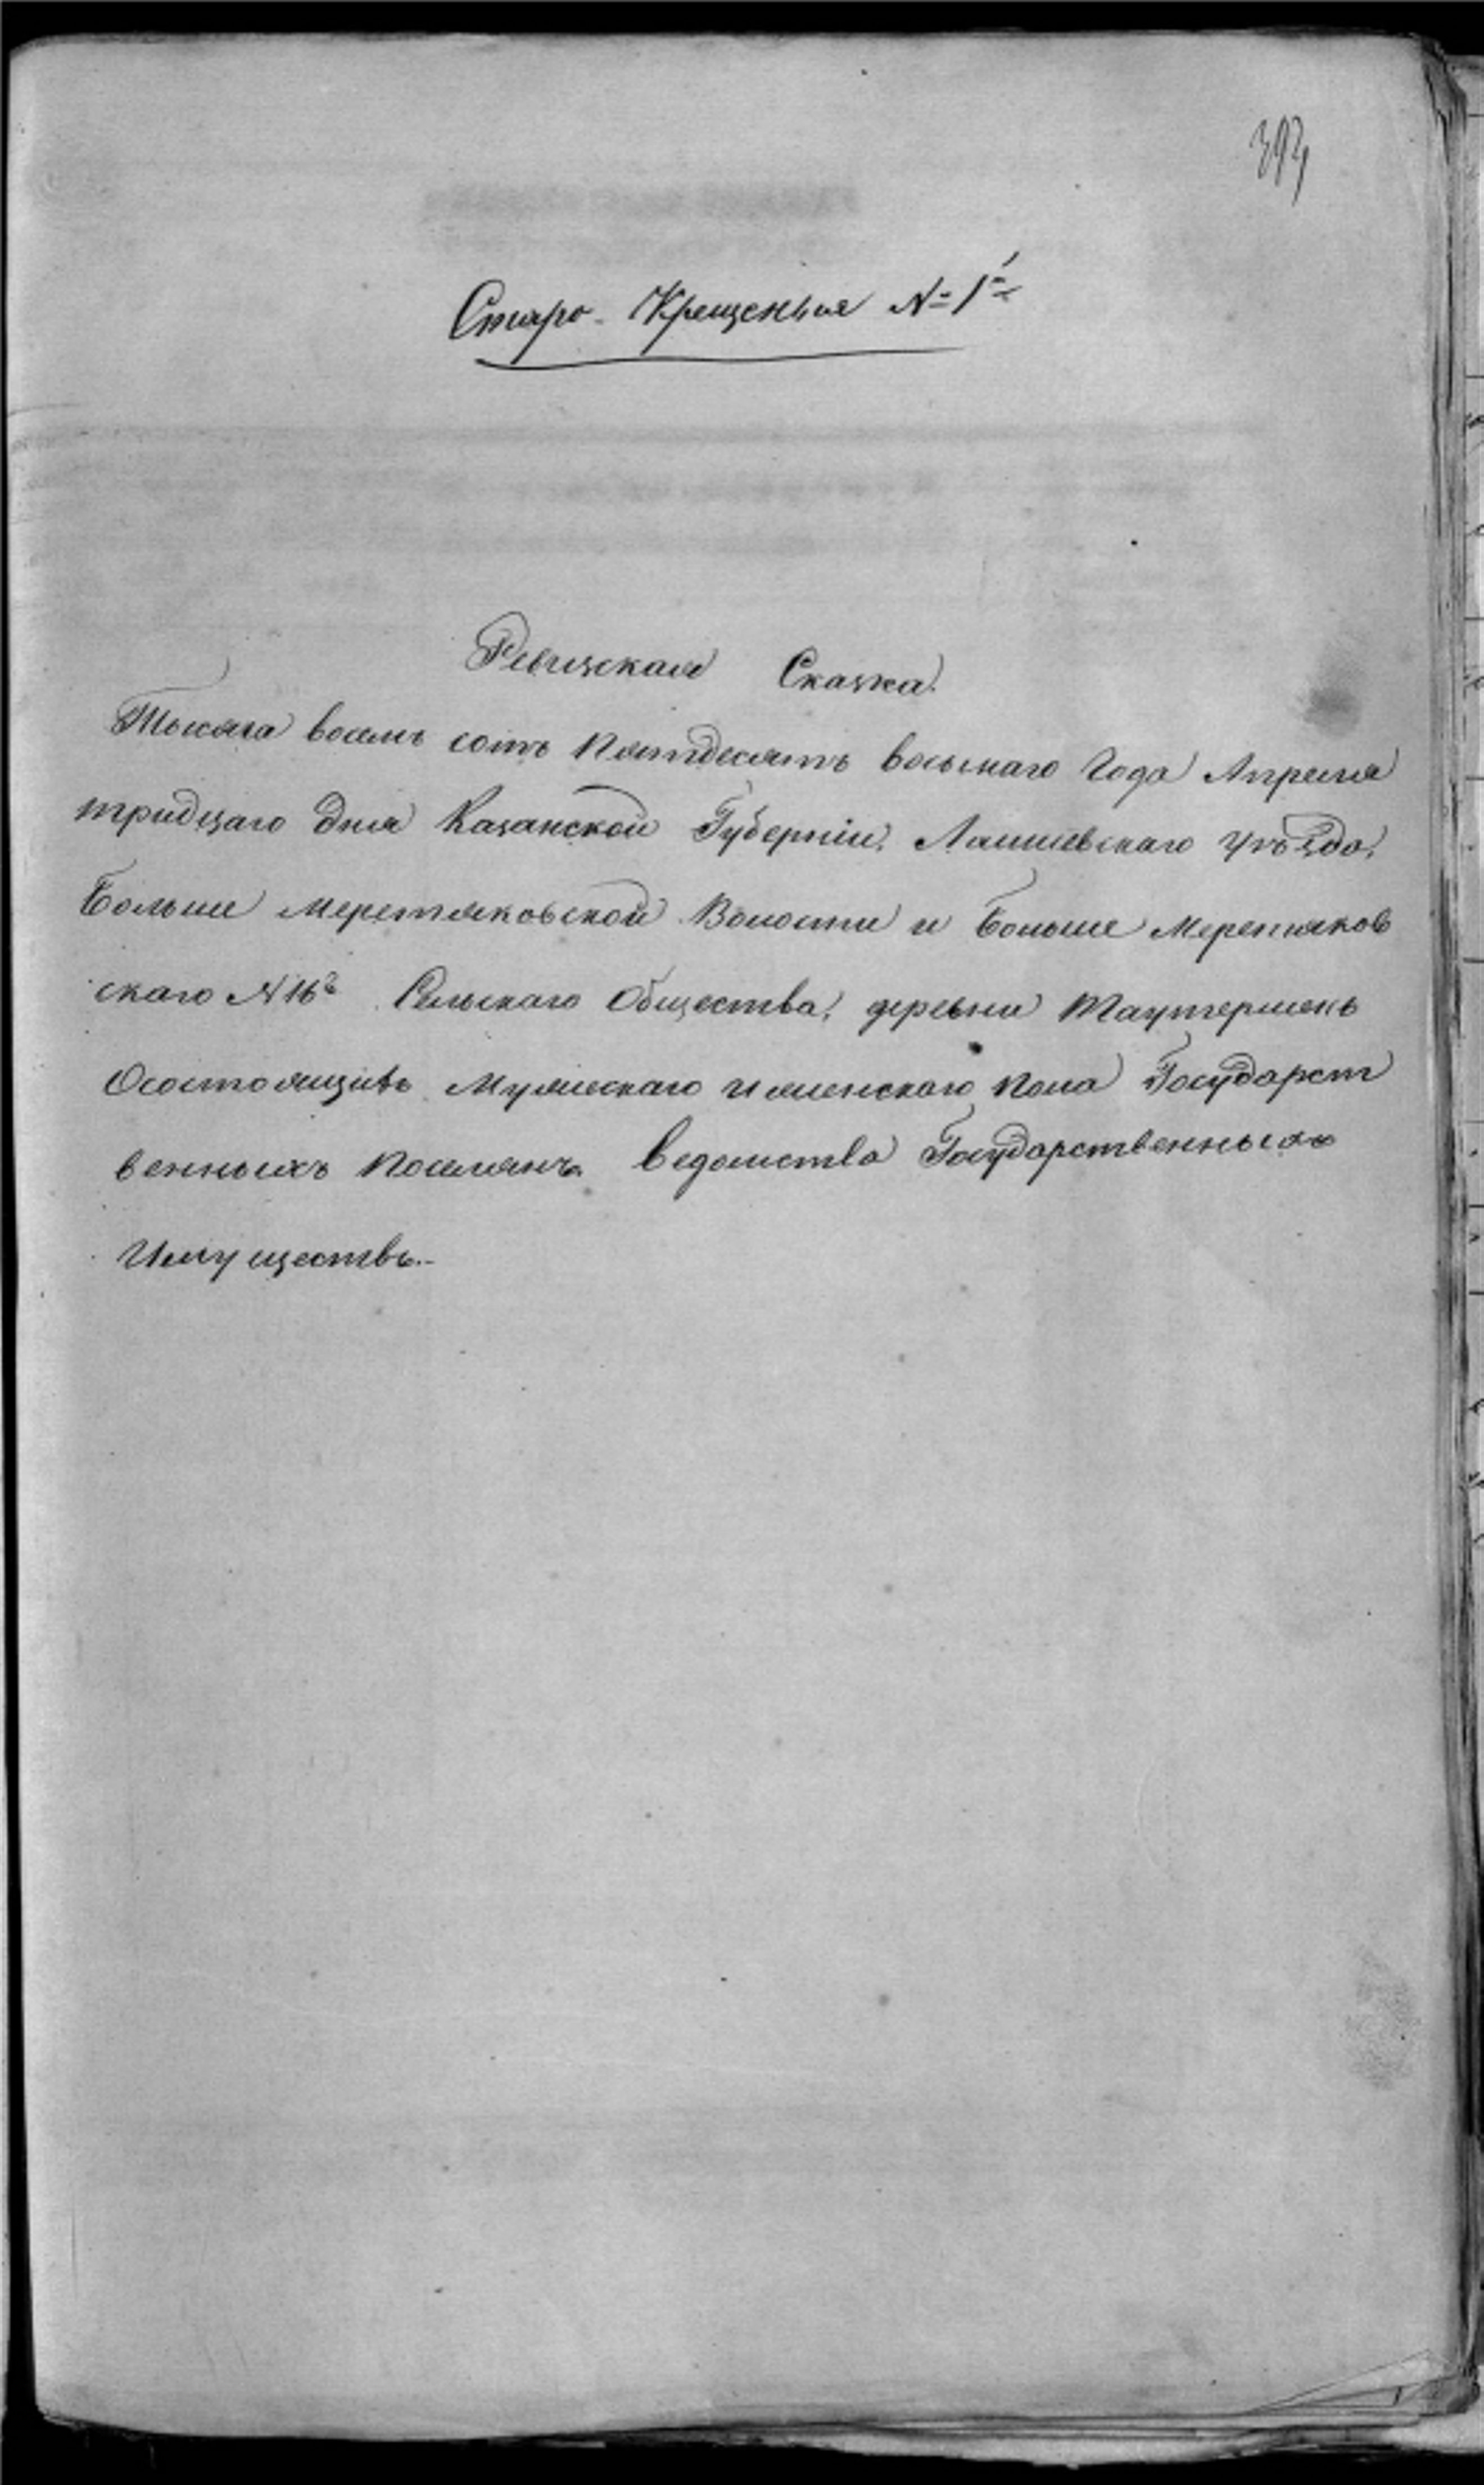 393
Старо-Крещеные №1й
Ревизская Сказка.
Тысяча восемь сотъ Пятдесятъ восьмаго Года Апреля
тридцаго Дня Казанской Губерніи, Лаишевскаго Уѣзда,
Больше Меретяковской Волости и Больше Меретяков
скаго №16го Сельскаго Общества, деревни Таутермень
Осостоящихъ Мужескаго и женскаго Пола Государст
венныхъ Поселянъ Ведомства Государственныхъ
Имуществъ.-